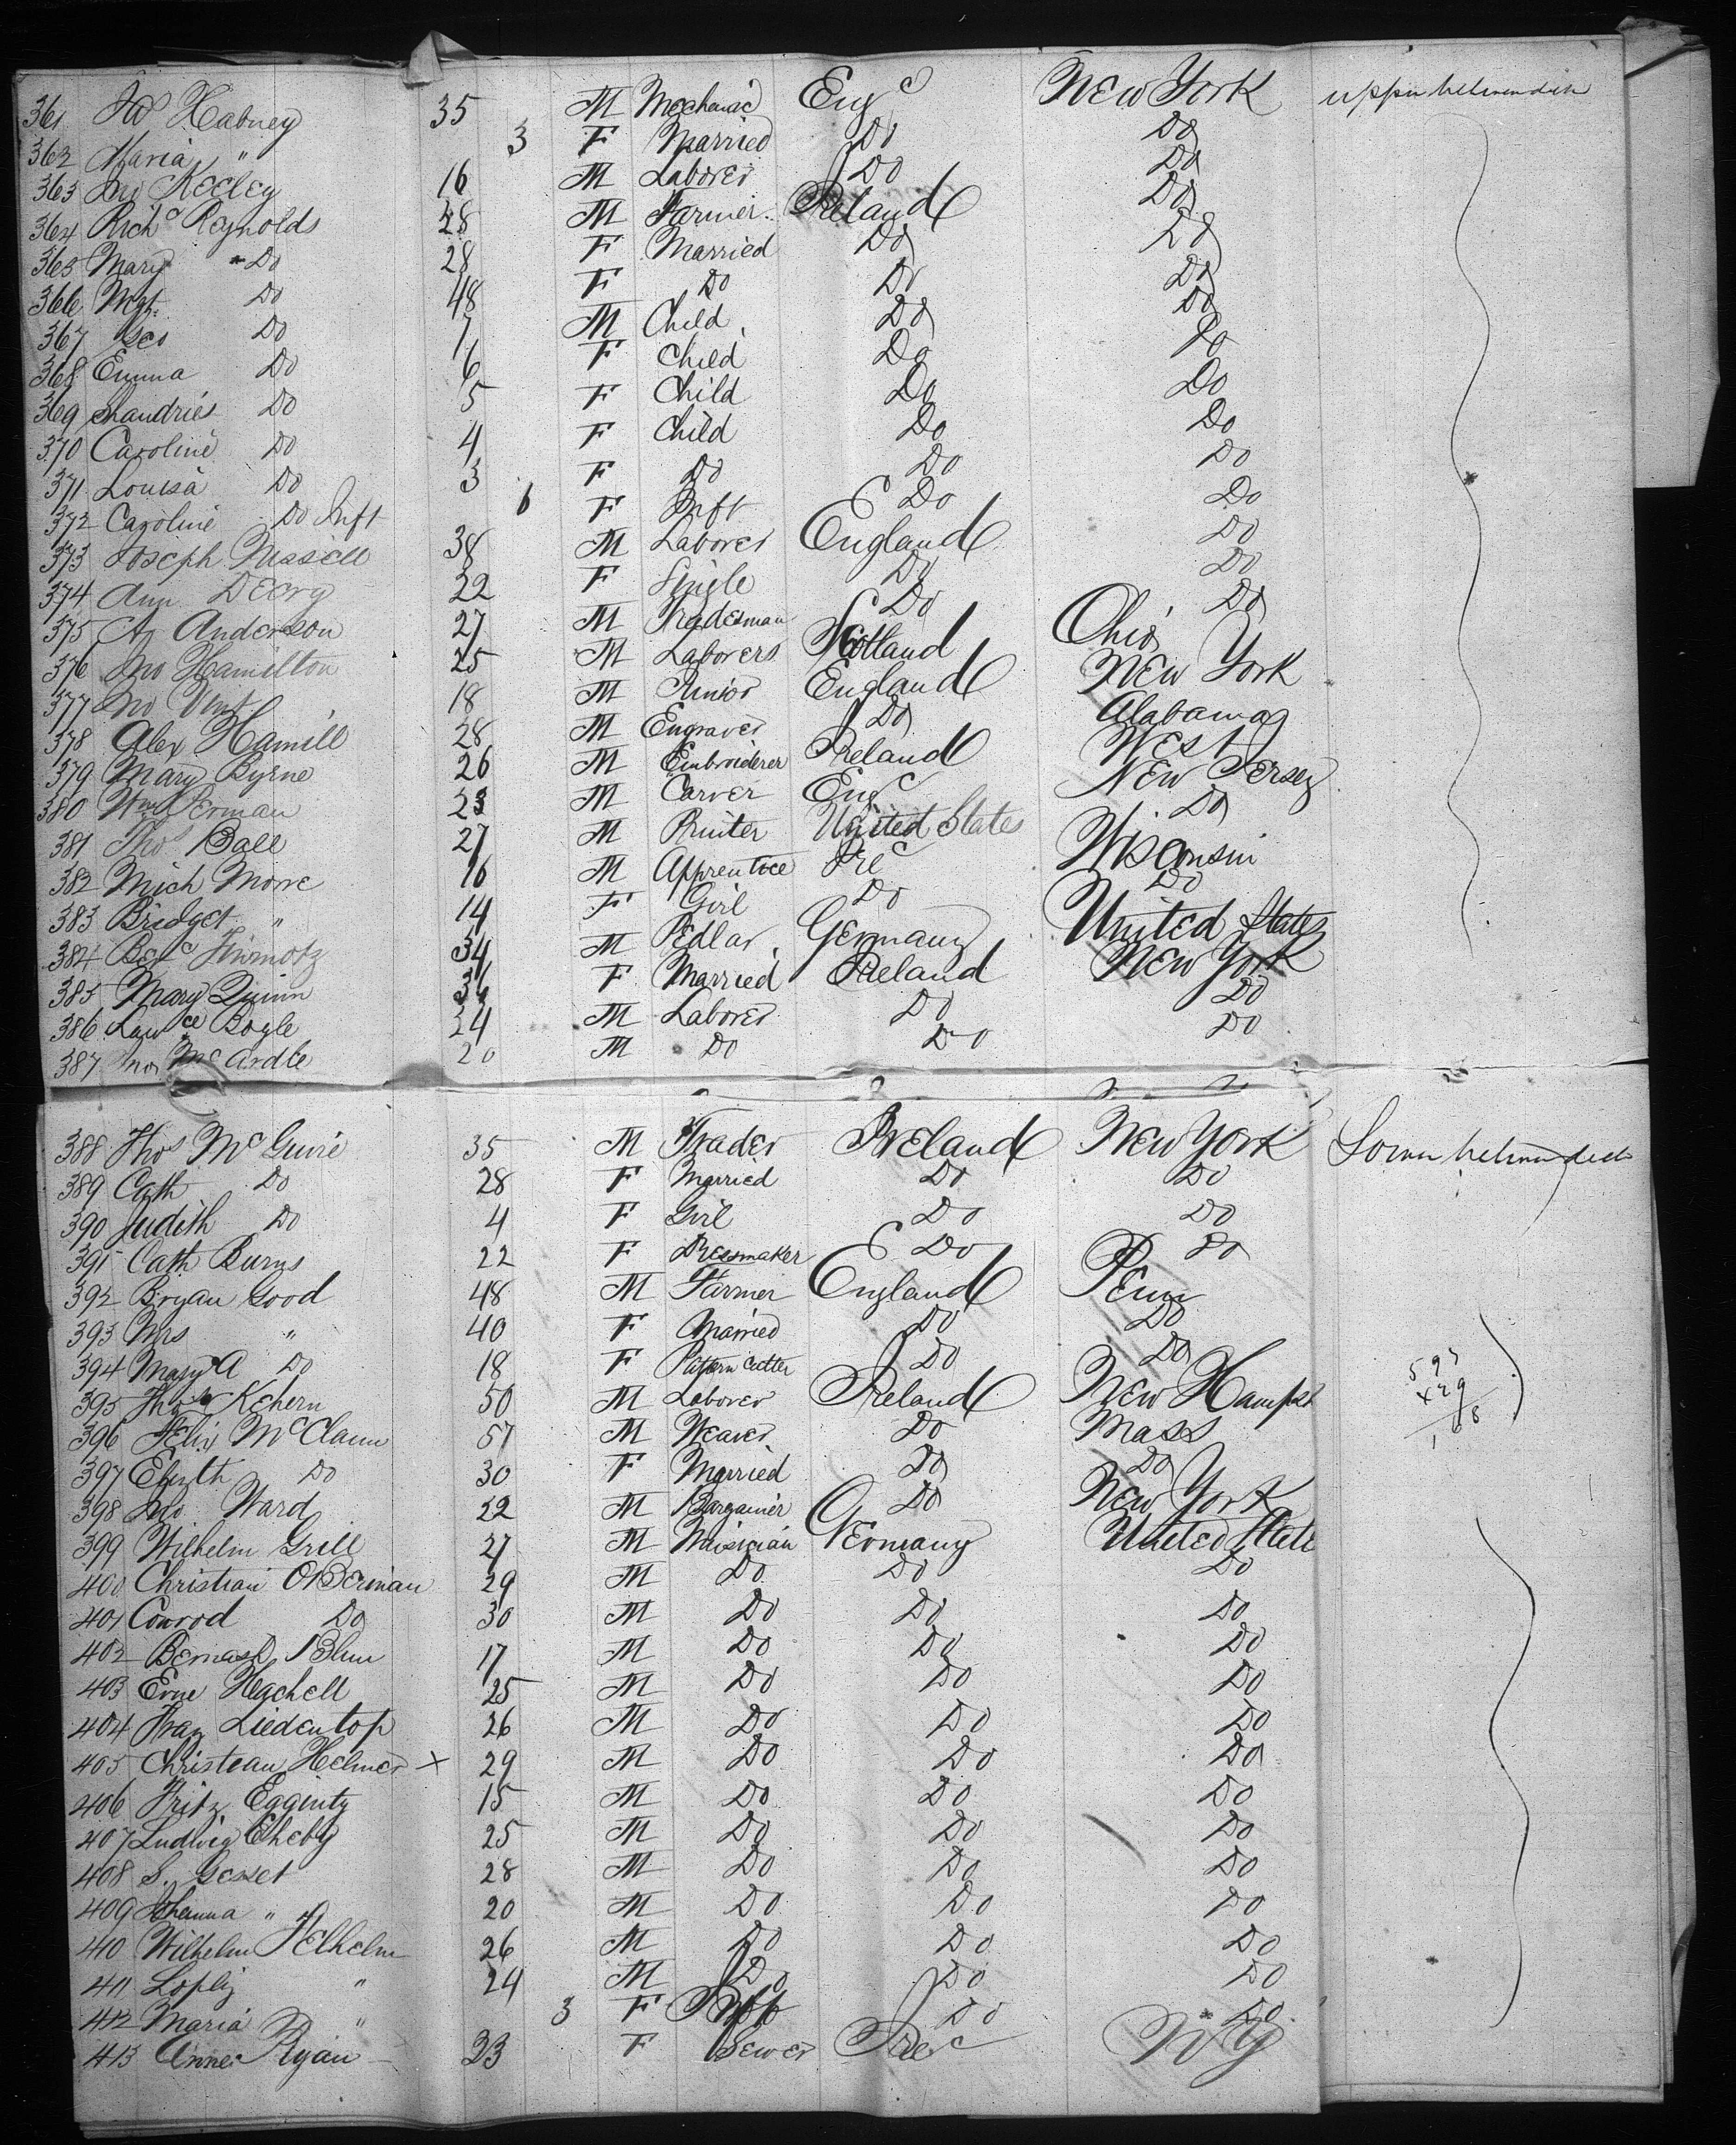 361 Jas Habney 35 M Mechanic Eng New York upper between deck
362 Maria " 3 F Married Do Do
363 Jno Keeley 16 M Laborer Do Do
364 Richd Reynolds 28 M Farmer Ireland Do
365 Mary Do 28 F Married Do Do
366 Mgt Do 48 F Do Do Do
367 Geo Do 7 M Child Do Do
368 Emma Do 6 F Child Do Do
369 Do 5 F Child Do Do
370 Caroline Do 4 F Child Do Do
371 Louisa Do 3 F Do Do Do
372 Caroline Do Inft 6 F Inft Do Do
373 Joseph Russell 38 M Laborer England Do
374 Ann Deary 22 F Single Do Do
375 Anderson 27 M Tradesman Do Do
376 Jno Hamilton 25 M Laborers Scotland Ohio
377 Jno 18 M Junior England New York
378 Alex Hamill 28 M Engraver Do Alabama
379 Mary Byrne 26 M Embroiderer Ireland West
380 Wm Perman 23 M Carver Eng New Jersey
381 Thos Ball 27 M Printer United States Do
382 Mich Morre 16 M Apprentice Ire Wisconsin
383 Bridget " 14 F Girl Do Do
384 34 M Pedlar Germany United States
385 Mary Quinn F Married Ireland New York
386 Lawce Bogle 24 M Laborer Do Do
387 Jno McArdle 20 M Do Do Do
388 Thos McGuire 35 M Trader Ireland New York Lower between deck
389 Cath Do 28 F Married Do Do
390 Judith Do 4 F Girl Do Do
391 Cath Burns 22 F Dressmaker Do Do
392 Bryan Good 48 M Farmer England Penn
393 Mrs " 40 F Married Do Do
394 Mary A Do 18 F Pattern Cutter Do Do
395 Thos Kehern 50 M Laborer Ireland New Hampsh
396 Felix McClann 57 M Weaver Do Mass
397 Do 30 F Married Do Do
398 Jno Ward 22 M Bargainer Do New York
399 Wilhelm Grill 27 M Musician Germany United State
400 Christian Oberman 29 M Do Do Do
401 Conrod Do 30 M Do Do Do
402 Bernard Blum 17 M Do Do Do
403 Erne Hachell 25 M Do Do Do
404 Franz Liedentop 26 M Do Do Do
405 Christean Helmer x 29 M Do Do Do
406 Fritz Eggintz 15 M Do Do Do
407 Ludwig Eheby 25 M Do Do Do
408 S. Gesset 28 M Do Do Do
409 Johanna " 20 M Do Do Do
410 Wilhelm Felhelm 26 M Do Do Do
411 Lopliz " 24 M Do Do Do
412 Maria " 3 F Inft Do Do
413 Anne Ryan 23 F Sewer Ire NY